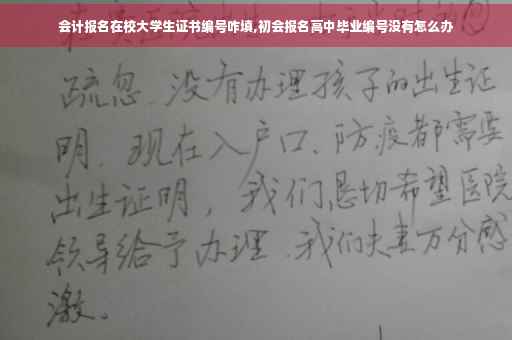 会计报名在校大学生证书编号咋填,初会报名高中毕业编号没有怎么办
疏忽.没有办理孩子的出生证
明.现在入户口、防疫都需要
出生证明，我们恳切希望医院
领导给予办理.我们夫妻万分感
激。